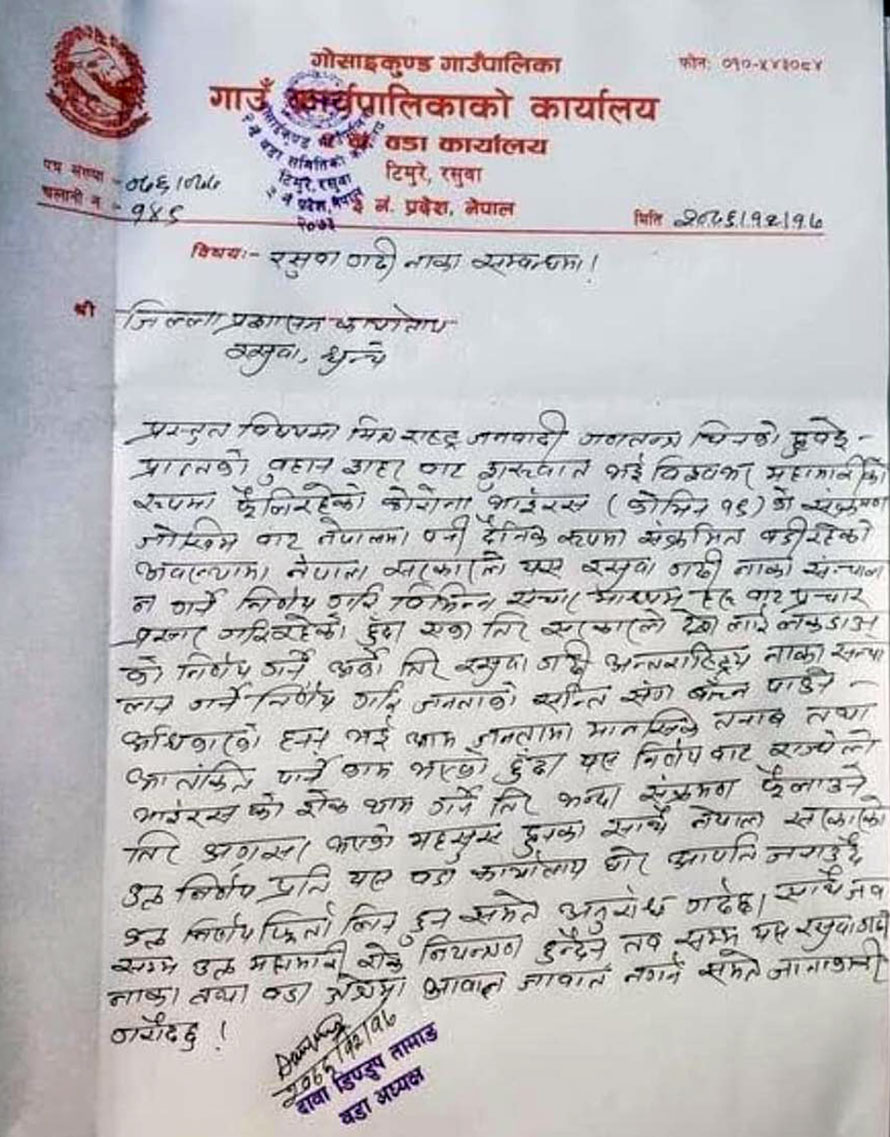 गोसाइकुण्ड गाउँपालिका
फोन: ०१०-५४३०८४
गाउँ कार्यपालिकाको कार्यालय
२ नं. वडा कार्यालय
टिमुरे, रसुवा
३ नं. प्रदेश, नेपाल
पत्र संख्या - ०७६/०७७
चलानी नं - १४६
मिति २०७६/१२/१७
विषय:- रसुवा गढी नाका सम्बन्धमा!
श्री जिल्ला प्रशासन कार्यालय
रसुवा, धुन्चे
प्रस्तुत विषयमा मित्र राष्ट्र जनवादी गणतन्त्र चिनको हुवेई-
प्रान्तको वुहान शहर बाट शुरुवात भई विश्वका महामारीको
रुपमा फैलिरहेको कोरोना भाईरस (कोभिड १९) को संक्रमण
जोखिम बाट नेपालमा पनी दैनिक रुपमा संक्रमित बढीरहेको
अवस्थामा नेपाल सरकारले यस रसुवा गढी नाका संन्चालन
न गर्ने निर्णय गरि विभिन्न संचार माध्यम हरु बाट प्रचार
प्रसार गरिरहेको हुँदा एका तिर सरकारले देश लाई लकडाउन
को निर्णय गर्ने अर्को तिर रसुवा गढी अन्तराष्ट्रिय नाका सन्चा
लन गर्ने निर्णय गरि जनताको सन्ति संग बाँच्न पाउने-
अधिकारको हनन भई आम जनतामा मानसिक तनाब तथा
आतंकित पार्ने काम भएको हुँदा यस निर्णय बाट राज्यले
भाईरस को रोक थाम गर्ने तिर भन्दा संक्रमण फैलाउने
तिर अग्रसर भएको महसुस हुनका साथै नेपाल सरकारको
उक्त निर्णय प्रति यस वडा कार्यालय घोर आपति जनाउँदै
उक्त निर्णय फिर्ता लिन हुन समेत अनुरोध गर्दछ। साथै जव
सम्म उक्त महामारी रोग नियन्त्रण हुन्देन तव सम्म यस रसुवागढी
नाका तथा वडा क्षेत्रमा आवात जावात नगर्न समेत जानाकारी
गरौंदछु!
२०७६/१२/१७
दावा डिण्डुप तामाङ
वडा अध्यक्ष